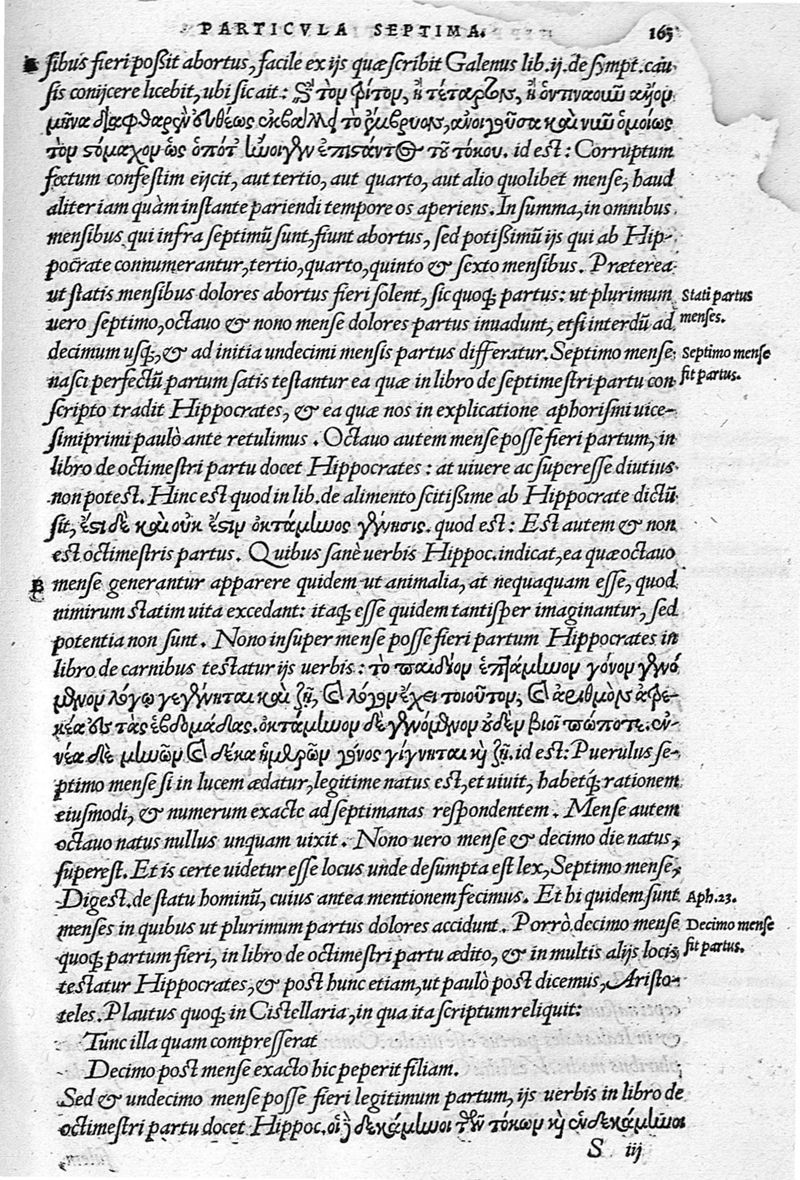 PARTICVLA SEPTIMA. 165
sibus fieri poßit abortus, facile ex ijs quæ scribit Galenus lib. ij. de sympt. cau
sis conijcere licebit, ubi sic ait: τὸμ τρίτομ, ἢ τέταρτομ, ἢ
μῆνα τὸ ἔμβρυομ, ὁμοίως
τὸμ στόμαχομ ὡς τοῦ τόκου. id est: Corruptum
fœtum confestim eijcit, aut tertio, aut quarto, aut alio quolibet mense, haud
aliter iam quàm instante pariendi tempore os aperiens. In summa, in omnibus
mensibus qui infra septimũ sunt, fiunt abortus, sed potißimũ ijs qui ab Hip-
pocrate connumerantur, tertio, quarto, quinto & sexto mensibus. Præterea
ut statis mensibus dolores abortus fieri solent, sic quoq; partus: ut plurimum
Stati partus
menses.
uero septimo, octauo & nono mense dolores partus inuadunt, etsi interdũ ad
decimum usq;, & ad initia undecimi mensis partus differatur. Septimo mense
Septimo mense
fit partus.
nasci perfectũ partum satis testantur ea quæ in libro de septimestri partu con
scripto tradit Hippocrates, & ea quæ nos in explicatione aphorismi uice-
simiprimi paulò ante retulimus. Octauo autem mense posse fieri partum, in
libro de octimestri partu docet Hippocrates: at uiuere ac superesse diutius
non potest. Hinc est quod in lib. de alimento scitißime ab Hippocrate dictũ
sit, ἔστι δὲ καὶ οὐκ ἔστιμ ὀκτάμηνος γέννησις. quod est: Est autem & non
est octimestris partus. Quibus sanè uerbis Hippoc. indicat, ea quæ octauo
B mense generantur apparere quidem ut animalia, at nequaquam esse, quod
nimirum statim uita excedant: itaq; esse quidem tantisper imaginantur, sed
potentia non sunt. Nono insuper mense posse fieri partum Hippocrates in
libro de carnibus testatur ijs uerbis: τὸ παιδίομ ἑπτάμηνομ γόνομ γενό
μενομ λόγῳ γεγέννηται καὶ ζῇ, καὶ λόγομ ἔχει τοιοῦτομ, καὶ ἀριθμὸμ ἀτρε-
κέα ἐς τὰς ἑβδομάδας. ὀκτάμηνομ δὲ γενόμενομ οὐδὲμ βιοῖ πώποτε. ἐν-
νέα δὲ μηνῶμ καὶ δέκα ἡμερῶμ γόνος γίγνεται καὶ ζῇ. id est: Puerulus se-
ptimo mense si in lucem ædatur, legitime natus est, et uiuit, habetq; rationem
eiusmodi, & numerum exacte ad septimanas respondentem. Mense autem
octauo natus nullus unquam uixit. Nono uero mense & decimo die natus,
superest. Et is certe uidetur esse locus unde desumpta est lex, Septimo mense,
Digest. de statu hominũ, cuius antea mentionem fecimus. Et hi quidem sunt
Aph. 23.
menses in quibus ut plurimum partus dolores accidunt. Porrò decimo mense
Decimo mense
fit partus.
quoq; partum fieri, in libro de octimestri partu ædito, & in multis alijs locis
testatur Hippocrates, & post hunc etiam, ut paulò post dicemus, Aristo-
teles. Plautus quoq; in Cistellaria, in qua ita scriptum reliquit:
Tunc illa quam compresserat
Decimo post mense exacto hic peperit filiam.
Sed & undecimo mense posse fieri legitimum partum, ijs uerbis in libro de
octimestri partu docet Hippoc. οἱ δὲ δεκάμηνοι τῶμ τόκωμ καὶ ἑνδεκάμηνοι
S iij